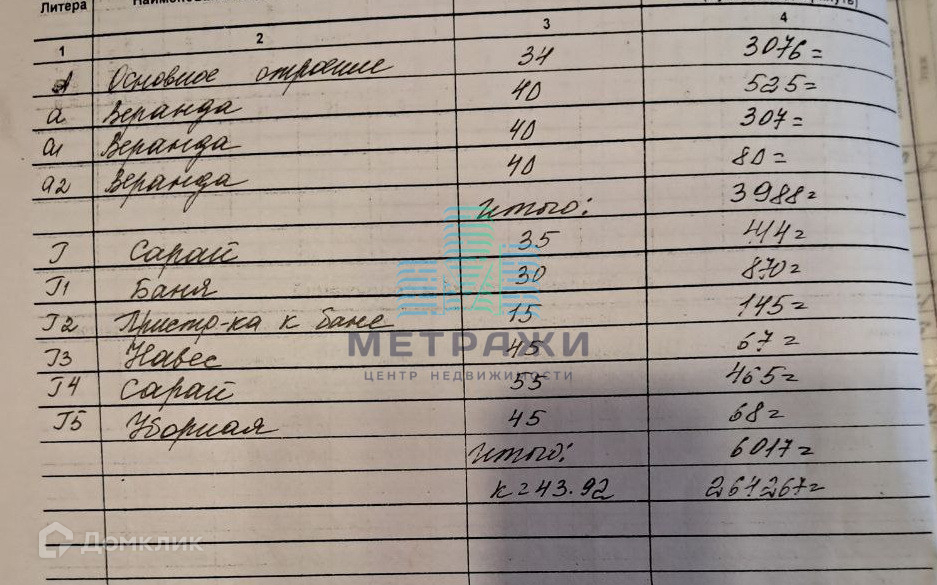 Литера
1 2 3 4
А Основное строение 34 3076=
а Веранда 40 525=
а1 Веранда 40 307=
а2 Веранда 40 80=
Итого: 3988=
Г Сарай 35 414=
Г1 Баня 30 870=
Г2 Пристр-ка к бане 15 145=
Г3 Навес 45 67=
МЕТРАЖИ
ЦЕНТР НЕДВИЖИМОСТИ
Г4 Сарай 55 465=
Г5 Уборная 45 68=
Итого: 6017=
к=43.92 264267=
Домклик